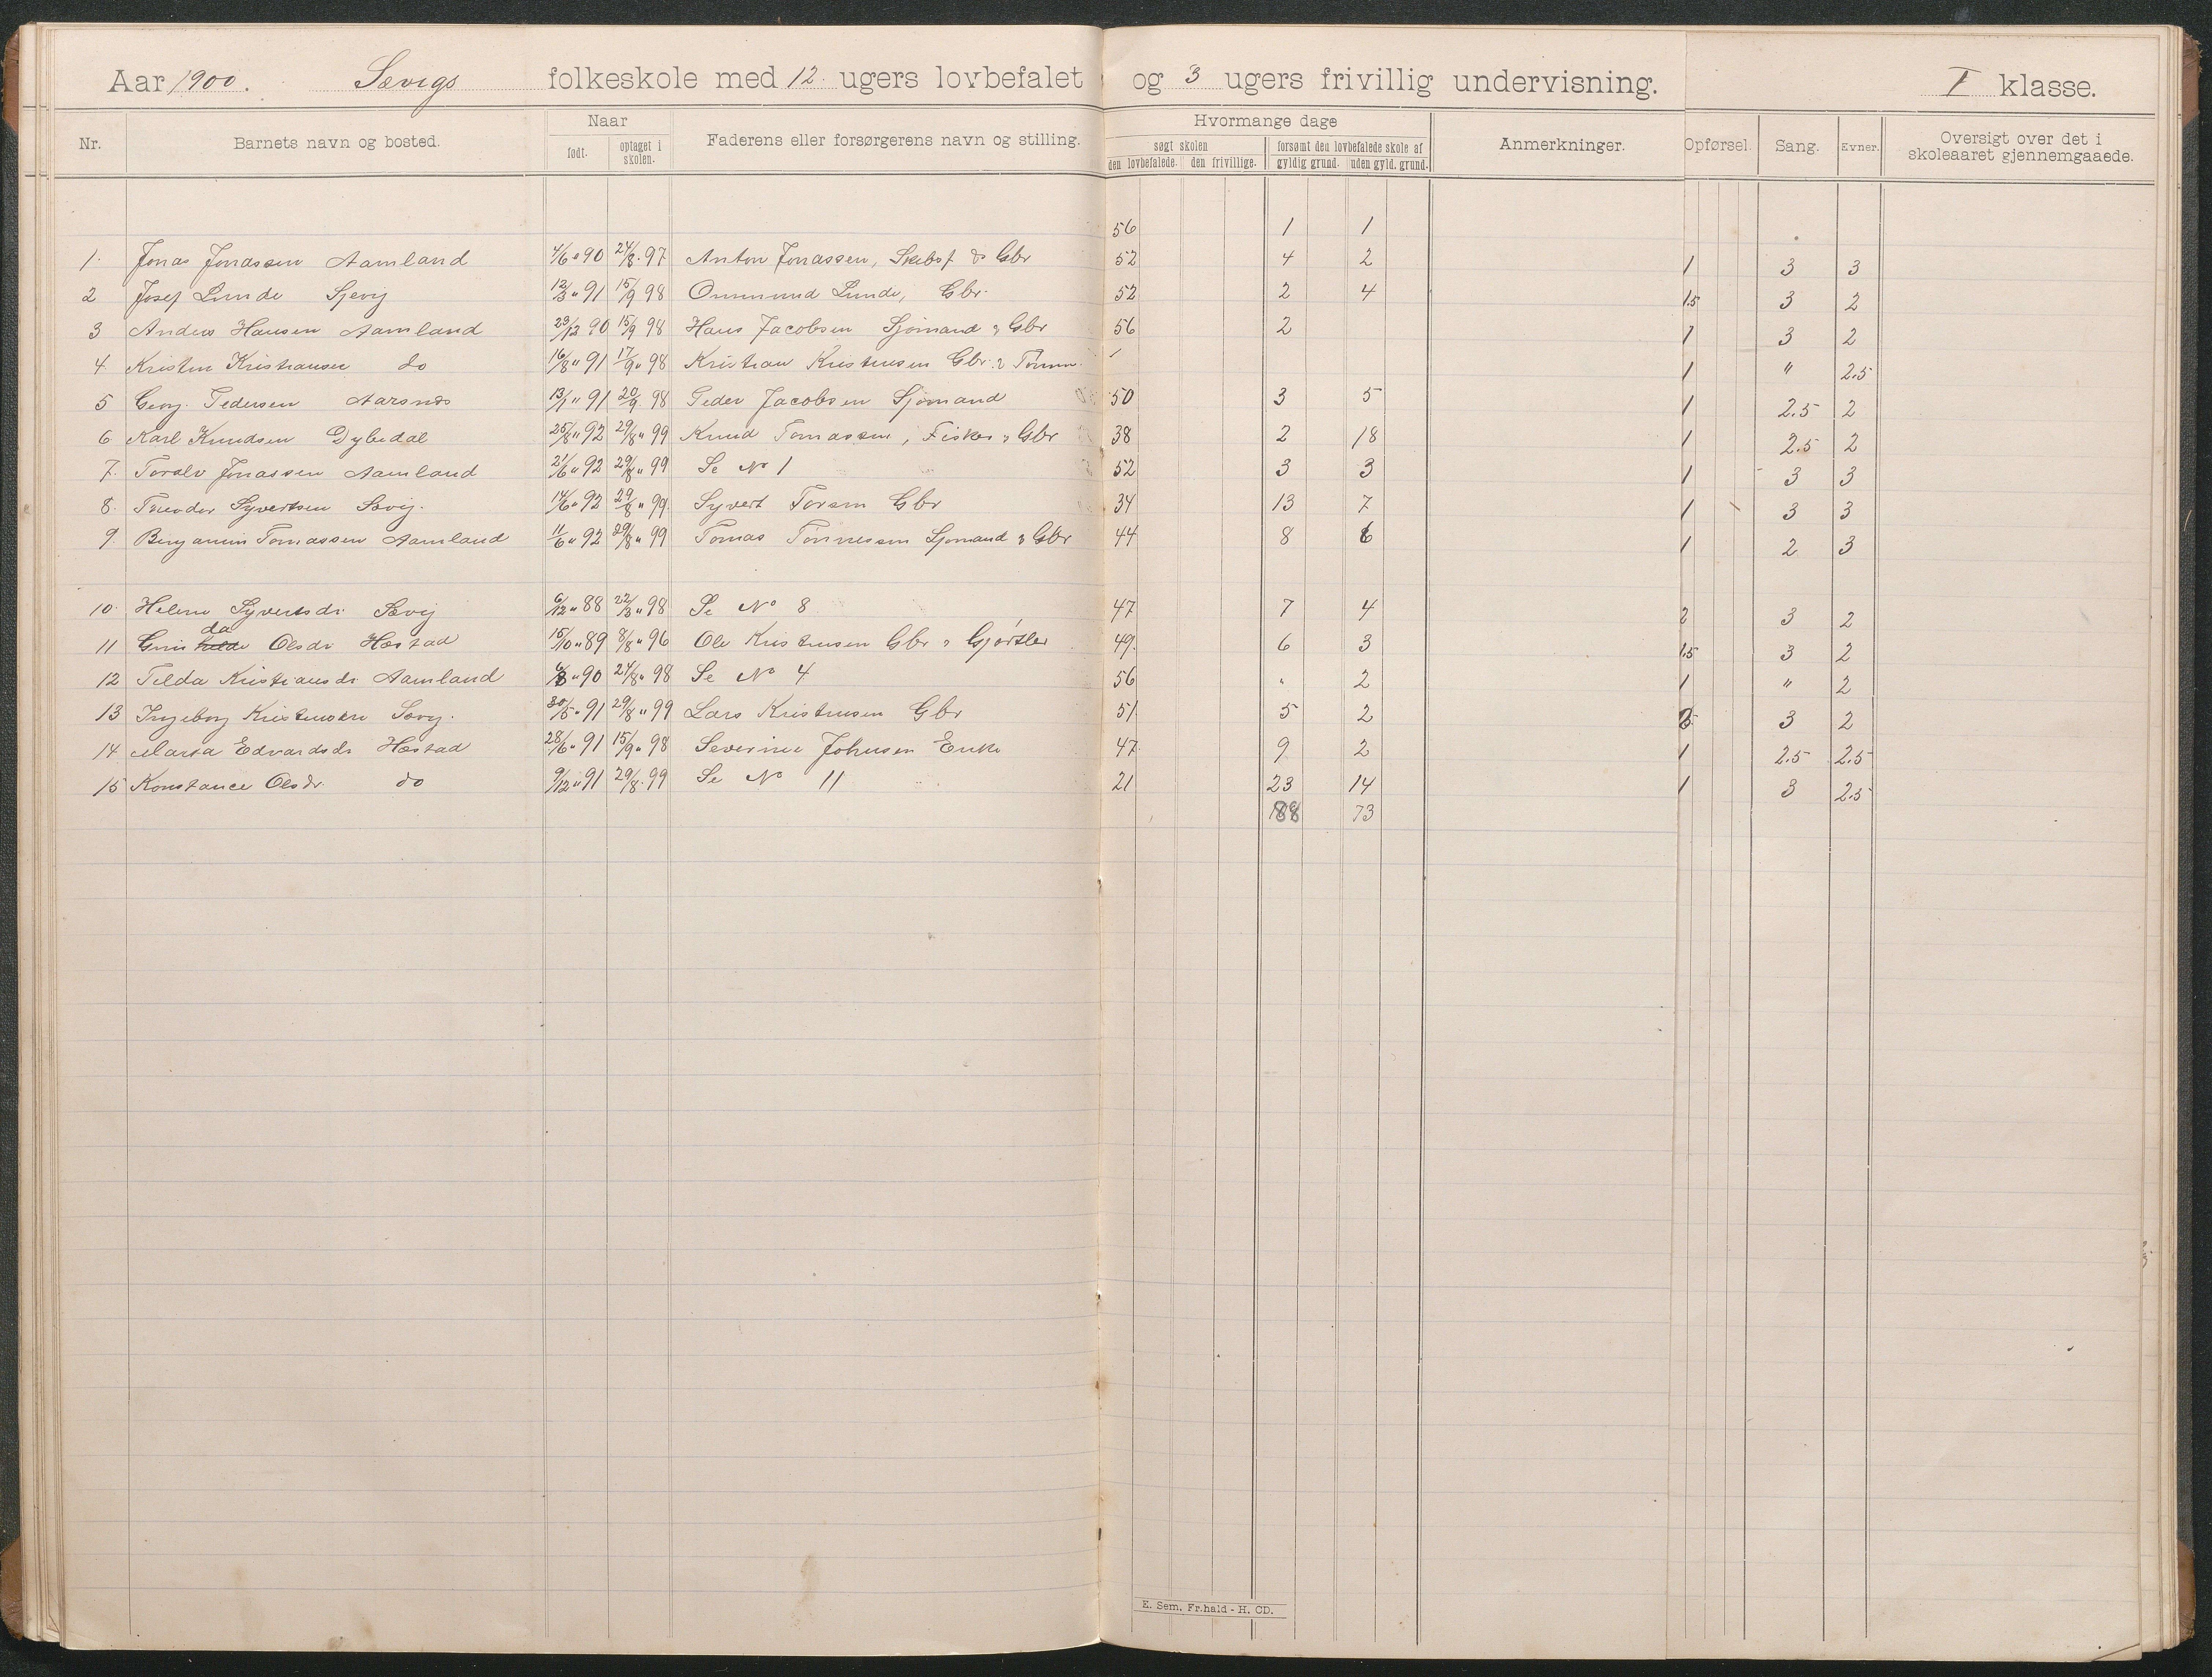 Aar 1900. Sævigs folkeskole med 12 ugers lovbefalet og 3 ugers frivillig undervisning. I klasse.
Nr. Barnets navn og bosted. Naar født. optaget i skolen. Faderens eller forsørgerens navn og stilling. Hvormange dage søgt skolen den lovbefalede. den frivillige. forsømt den lovbefalede skole af gyldig grund. uden gyld. grund. Anmerkninger. Opførsel. Sang. Evner. Oversigt over det i skoleaaret gjennemgaaede.
56 1 1
1. Jonas Jonassen Aamland 4/6 " 90 24/8 . 97 Anton Jonassen, Gbr 52 4 2 1 3 3
2 Josef Lunde Sjevig 12/3 " 91 15/9 98 Ommund Lunde, Gbr. 52 2 4 1.5 3 2
3 Anders Hansen Aamland 23/12 90 15/9 98 Hans Jacobsen Sjømand & Gbr 56 2 1 3 2
4. Kristen Kristiansen do 16/8 " 91 17/9 " 98 Kristian Kristensen Gbr. & 1 " 2.5
5 Georg Pedersen Aarsnes 13/1 " 91 20/9 98 Peder Jacobsen Sjømand 50 3 5 1 2.5 2
6. Karl Knudsen Dybedal 25/8 " 92 29/8 " 99 Knud Tomassen, Fisker & Gbr 38 2 18 1 2.5 2
7. Toralv Jonassen Aamland 21/6 " 92 29/8 " 99 Se No 1 52 3 3 1 3 3
8. Theodor Syvertsen Sævig. 14/6 " 92 29/8 " 99 Syvert Gbr 34 13 7 1 3 3
9. Benjamin Tomassen Aamland 11/6 " 92 29/8 " 99 Tomas Tønnessen Sjømand & Gbr 44 8 6 1 2 3
10. Helene Syvertsdr Sævig 6/12 " 88 22/3 " 98 Se No 8 47 7 4 2 3 2
da
11 Olsdr Hæstad 15/10 " 89 8/8 " 96 Ole Kristensen Gbr & Gjørtler 49. 6 3 1.5 3 2
12 Tilda Kristiansdr Aamland 90 24/8 " 98 Se No 4 56 " 2 1 " 2
13 Ingeborg Kristensen Sævig. 30/5 " 91 29/8 " 99 Lars Kristensen Gbr 51 5 2 3 2
14. Marta Edvardsdr Hæstad 28/6 " 91 15/9 " 98 Severine Johnsen Enke 47 9 2 1 2.5 2.5
15 Konstance Olsdr. do 9/12 " 91 29/8 . 99 Se No 11 21 23 14 1 3 2.5
88 73
E. Sem. Fr.hald - H. CD.